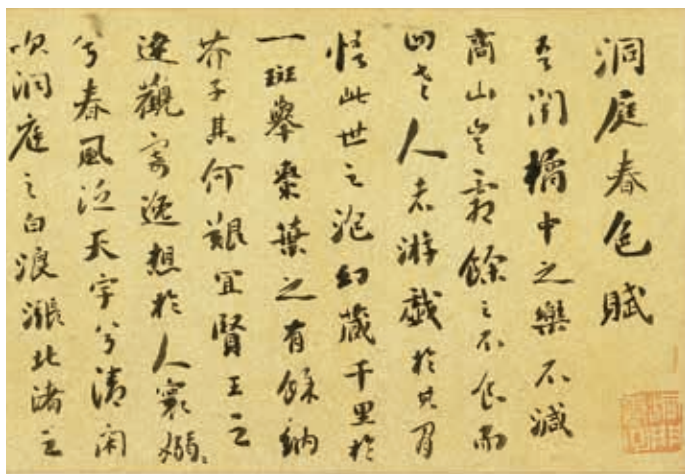 洞庭春色賦
吾聞橘中之樂不減
商山豈霜餘之不食而
四老人者游戲於其間
悟此世之泡幻藏千里於
一斑舉棗葉之有餘納
芥子其何艱宜賢王之
達觀寄逸想於人寰嫋〻
兮春風泛天宇兮清閑
吹洞庭之白浪漲北渚之